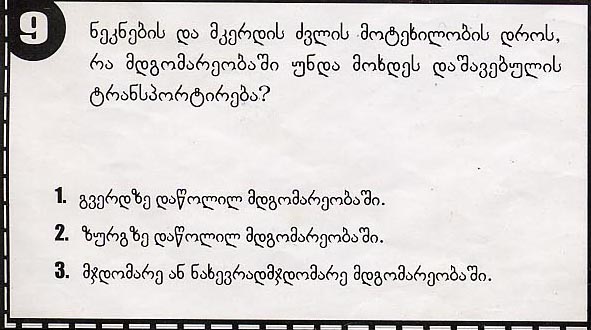 9
ნეკნების და მკერდის ძვლის მოტეხილობის დროს,
რა მდგომარეობაში უნდა მოხდეს დაშავებულის
ტრანსპორტირება?
1. გვერდზე დაწოლილ მდგომარეობაში.
2. ზურგზე დაწოლილ მდგომარეობაში.
3. მჯდომარე ან ნახევრადმჯდომარე მდგომარეობაში.